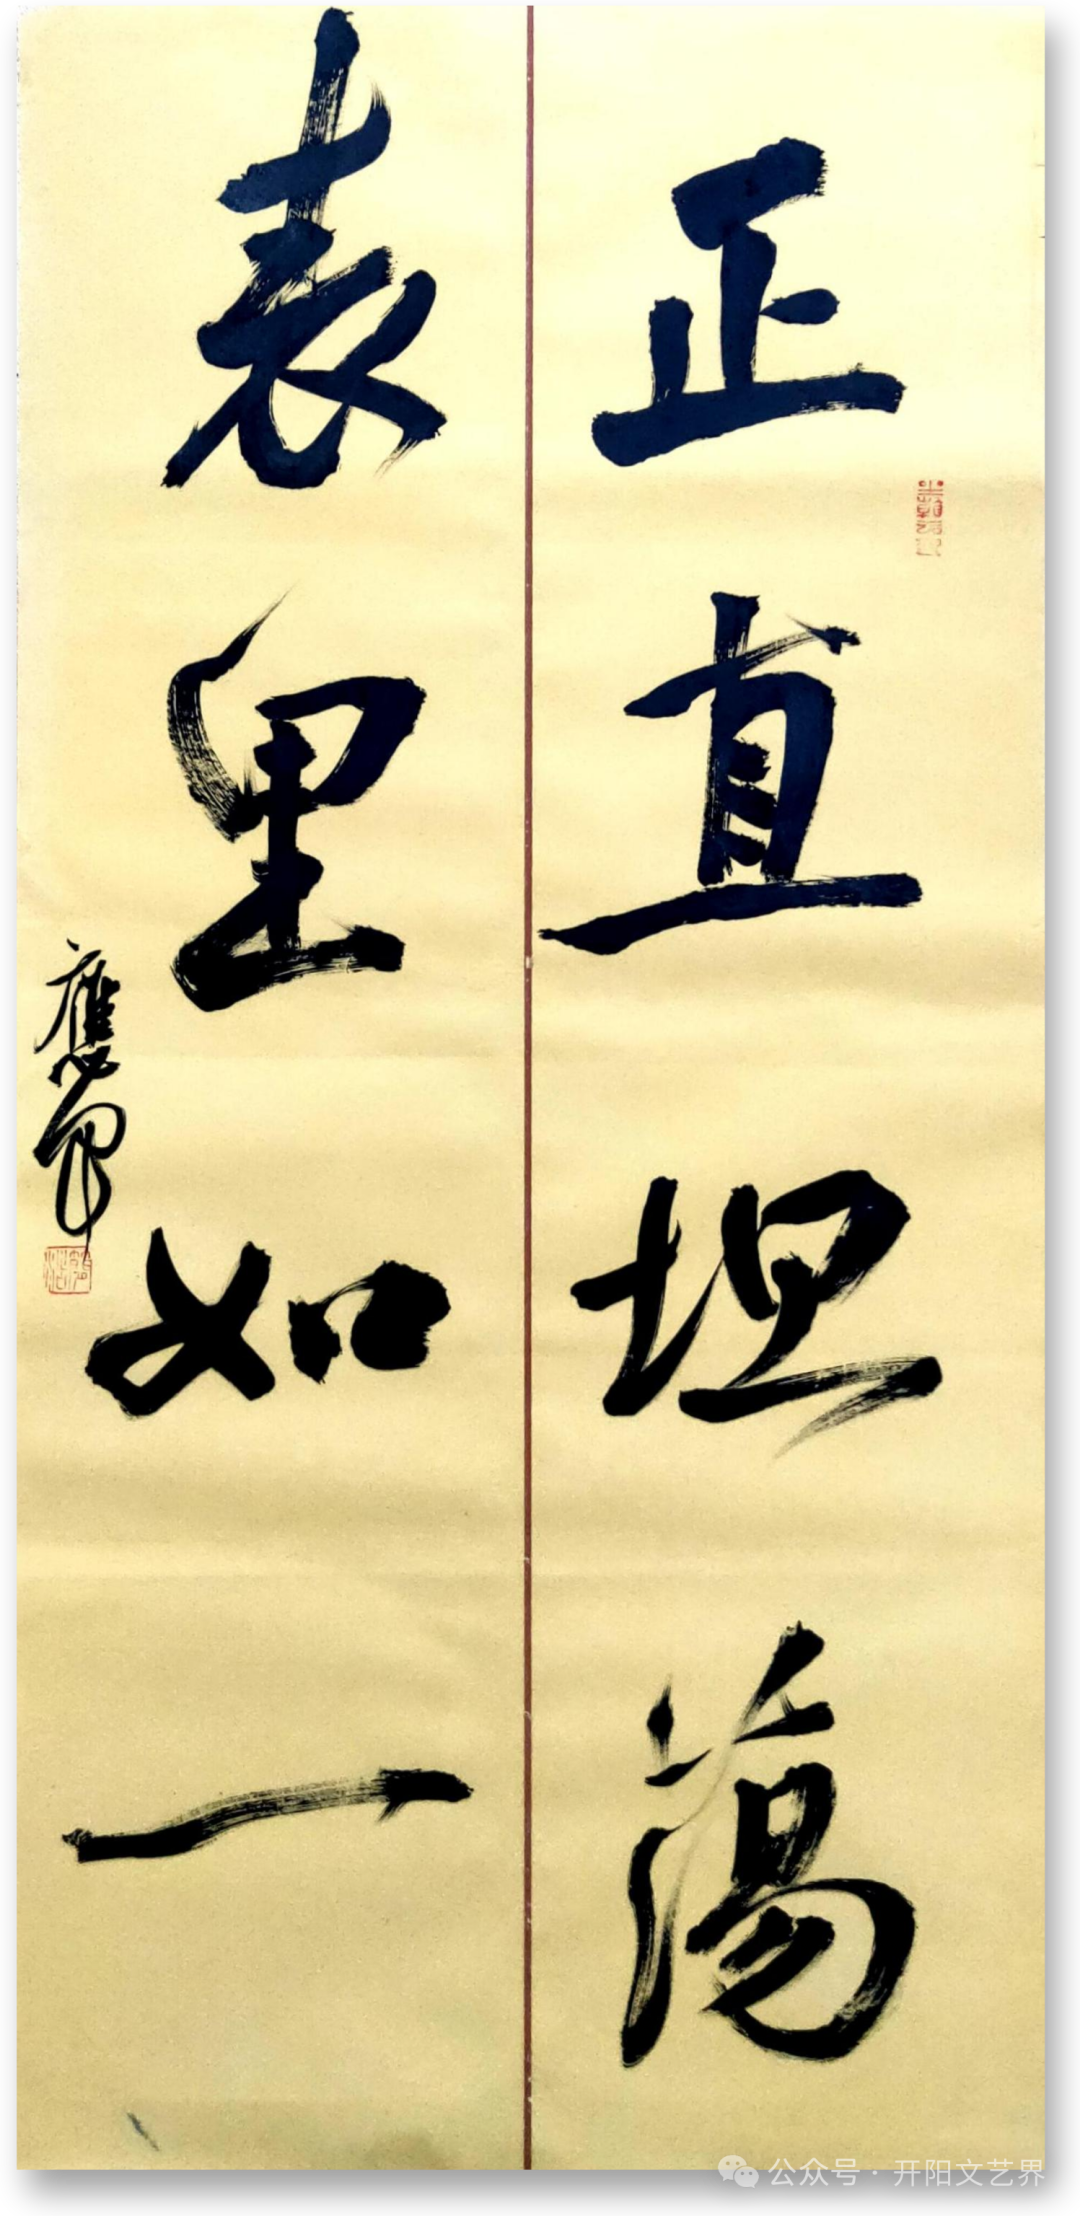 正直坦蕩
表里如一
公众号·开阳文艺界